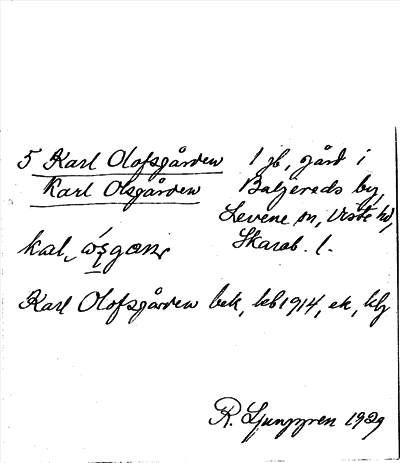 5 Karl Olofsgården 1 jb, gård i
Karl Olsgården Baljereds by,
Levene sn, Viste hd,
Skarab. l.
Karl Olofsgården bek, leb 1914, ek, klj
R. Ljunggren 1929